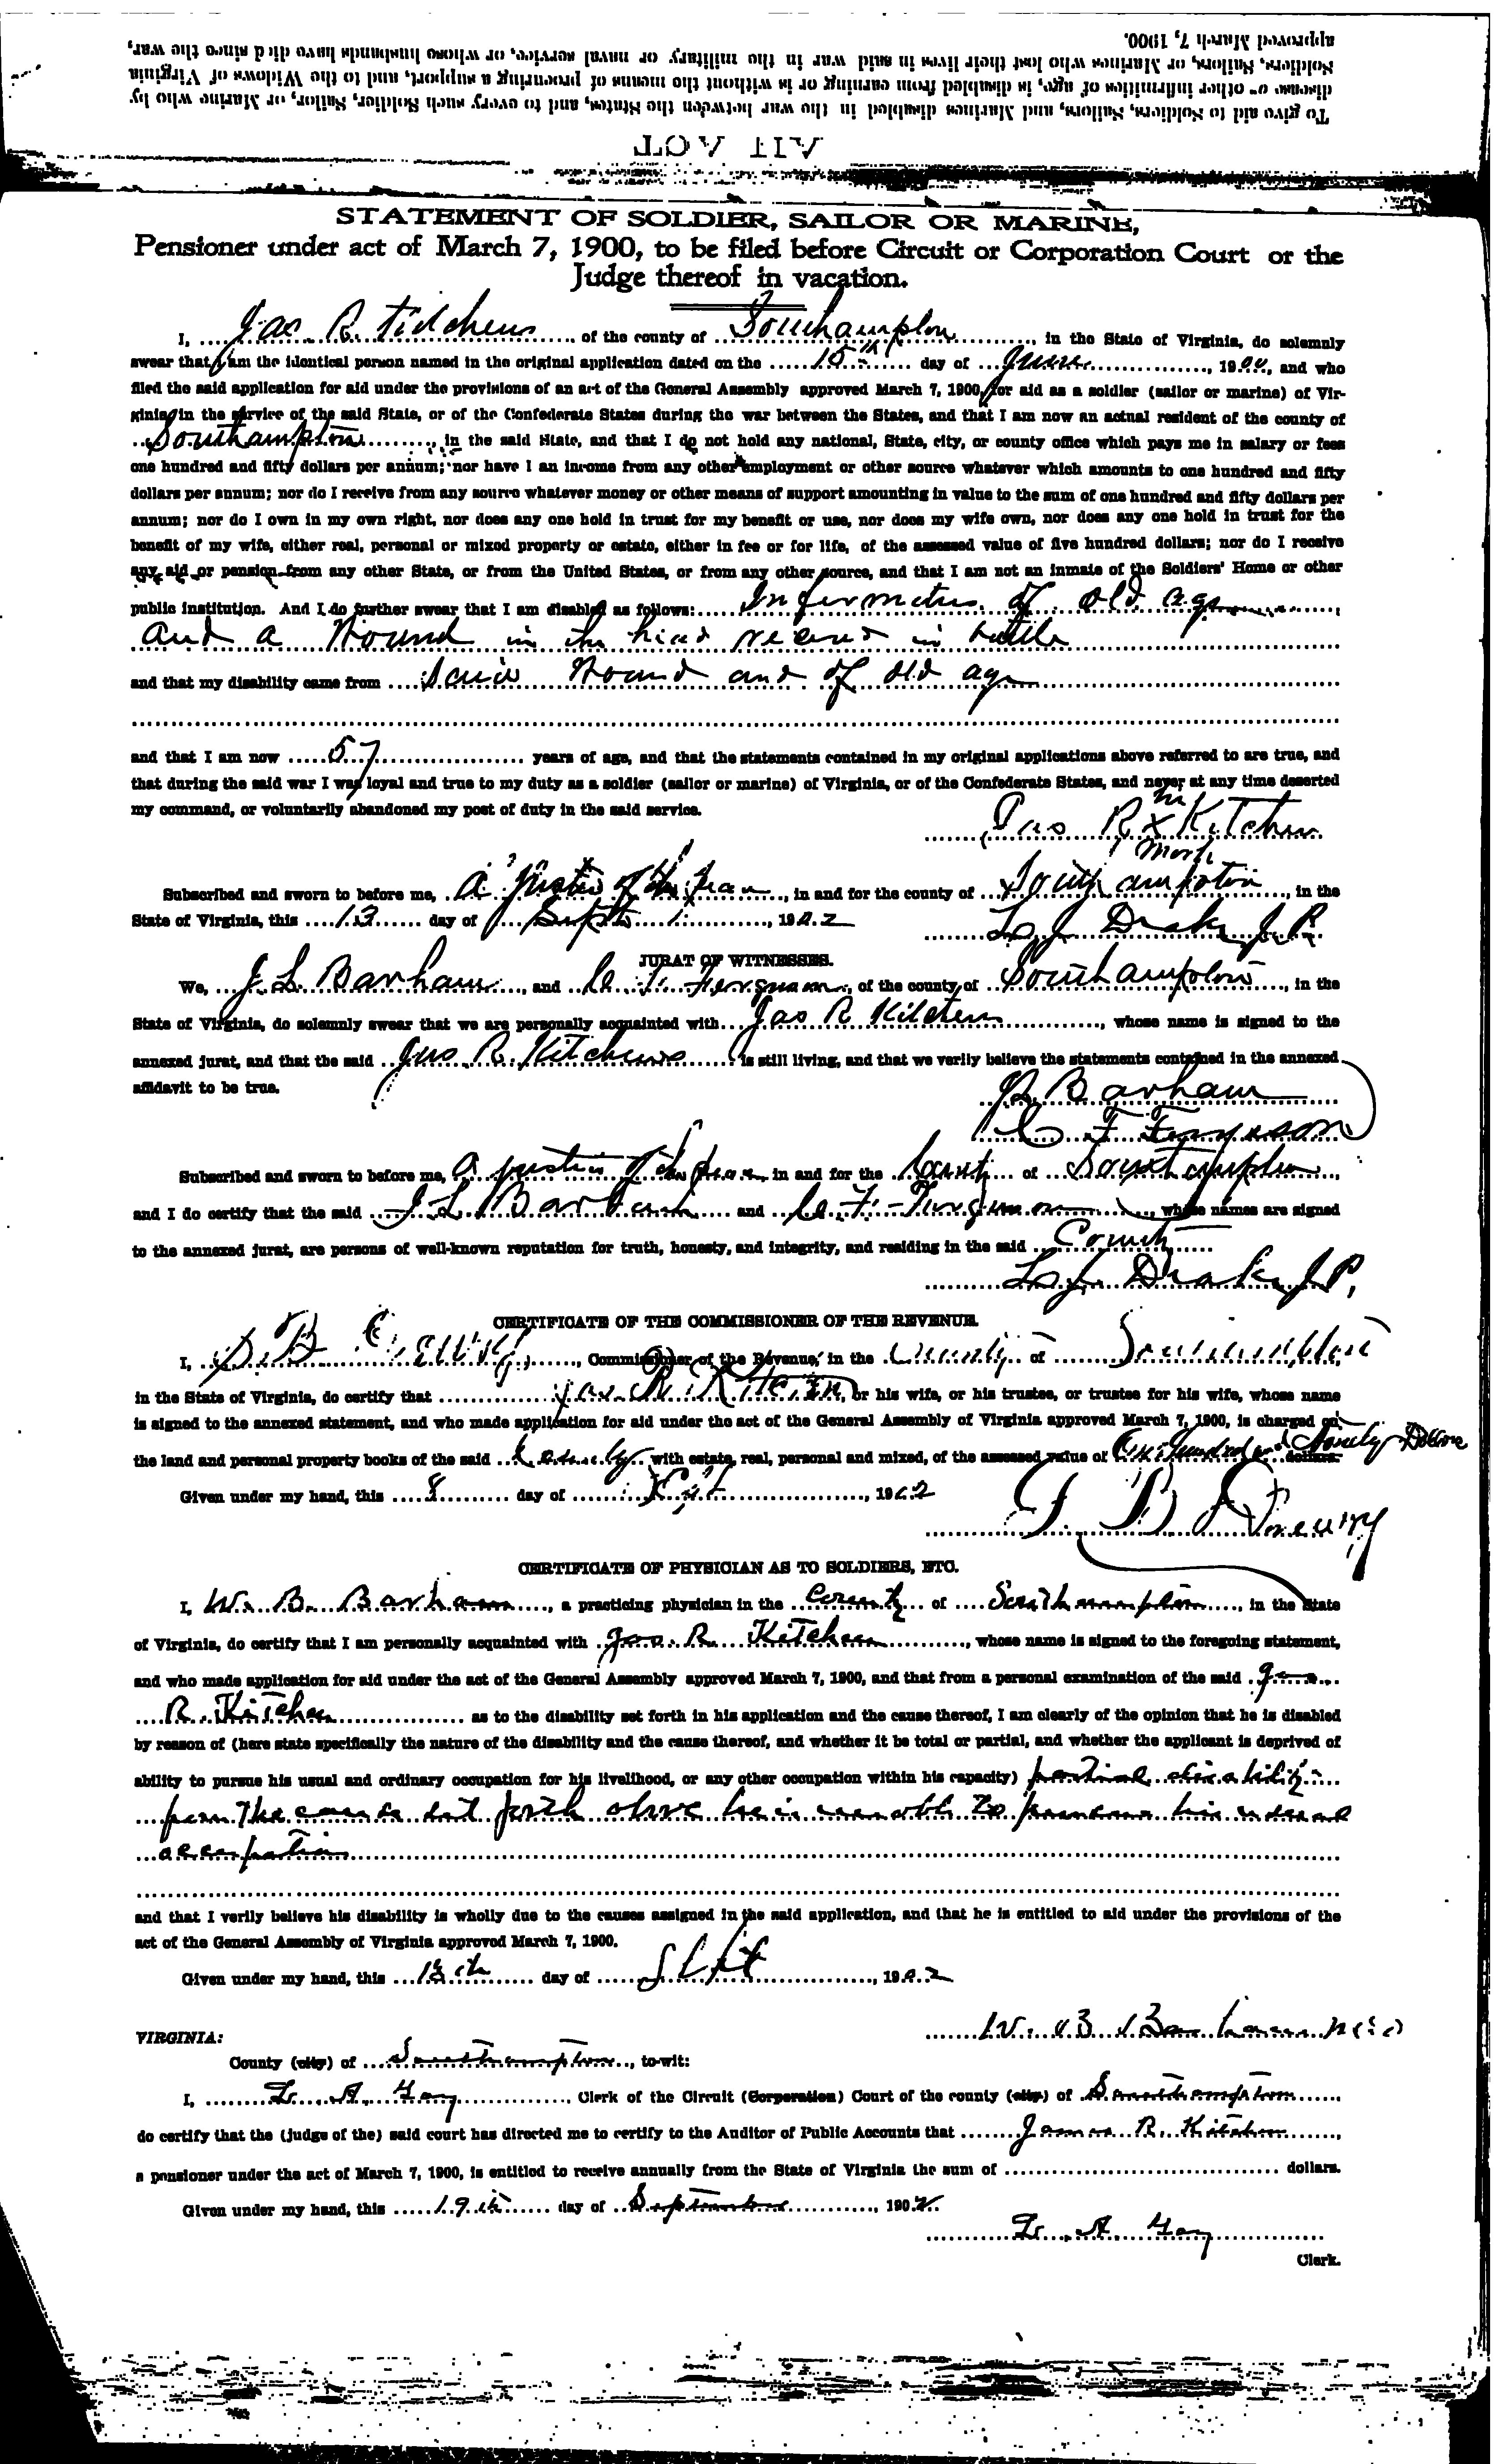 To give aid to Soldiers, Sailors, and Marines disabled in the war between the States, and to every such Soldier, Sailor, or Marine who by
disease or other infirmities of age, is disabled from earning or is without the means of procuring a support, and to the Widows of Virginia
Soldiers, Sailors, or Marines who lost their lives in said war in the military or naval service, or whose husbands have died since the war,
approved March 7, 1900.
STATEMENT OF SOLDIER, SAILOR OR MARINE,
Pensioner under act of March 7, 1900, to be filed before Circuit or Corporation Court or the
Judge thereof in vacation.
I, Jas. R. Kitchens of the county of Southampton, in the State of Virginia, do solemnly
swear that I am the identical person named in the original application dated on the 15th day of June, 1900, and who
filed the said application for aid under the provisions of an act of the General Assembly approved March 7, 1900, for aid as a soldier (sailor or marine) of Vir-
ginia, in the service of the said State, or of the Confederate States during the war between the States, and that I am now an actual resident of the county of
Southampton, in the said State, and that I do not hold any national, State, city, or county office which pays me in salary or fees
one hundred and fifty dollars per annum; nor have I an income from any other employment or other source whatever which amounts to one hundred and fifty
dollars per annum; nor do I receive from any source whatever money or other means of support amounting in value to the sum of one hundred and fifty dollars per
annum; nor do I own in my own right, nor does any one hold in trust for my benefit or use, nor does my wife own, nor does any one hold in trust for the
benefit of my wife, either real, personal or mixed property or estate, either in fee or for life, of the assessed value of five hundred dollars; nor do I receive
any aid or pension from any other State, or from the United States, or from any other source, and that I am not an inmate of the Soldiers' Home or other
public institution. And I do further swear that I am disabled as follows: Infermetus of old age
and a Wound in the head receivd in battle
and that my disability came from Wound and of old age
and that I am now 57 years of age, and that the statements contained in my original applications above referred to are true, and
that during the said war I was loyal and true to my duty as a soldier (sailor or marine) of Virginia, or of the Confederate States, and never at any time deserted
my command, or voluntarily abandoned my post of duty in the said service.
Jas R x Kitchen
mark
Subscribed and sworn to before me, a Justice of the Peace, in and for the county of Southampton, in the
State of Virginia, this 13 day of Sept, 1902
Drake J.P.
JURAT OF WITNESSES.
We, J L Barham, and C. F. Ferguson, of the county of Southampton, in the
State of Virginia, do solemnly swear that we are personally acquainted with Jas R Kitchens, whose name is signed to the
annexed jurat, and that the said Jas. R. Kitchens is still living, and that we verily believe the statements contained in the annexed
affidavit to be true.
J L Barham
C F Ferguson
Subscribed and sworn to before me, a justice of the peace in and for the County of Southampton,
and I do certify that the said J L Barham and C. F. Ferguson, whose names are signed
to the annexed jurat, are persons of well-known reputation for truth, honesty, and integrity, and residing in the said County
Drake J.P.
CERTIFICATE OF THE COMMISSIONER OF THE REVENUE.
I, B, Commissioner of the Revenue, in the County of Southampton,
in the State of Virginia, do certify that Jas. R. Kitchen, or his wife, or his trustee, or trustee for his wife, whose name
is signed to the annexed statement, and who made application for aid under the act of the General Assembly of Virginia approved March 7, 1900, is charged on
the land and personal property books of the said County with estate, real, personal and mixed, of the assessed value of One Hundred and Ninety Dollars dollars.
Given under my hand, this 8 day of, 1902
B
CERTIFICATE OF PHYSICIAN AS TO SOLDIERS, ETC.
I, W. B. Barham, a practicing physician in the County of Southampton, in the State
of Virginia, do certify that I am personally acquainted with Jas. R. Kitchen, whose name is signed to the foregoing statement,
and who made application for aid under the act of the General Assembly approved March 7, 1900, and that from a personal examination of the said Jas.
R. Kitchen as to the disability set forth in his application and the cause thereof, I am clearly of the opinion that he is disabled
by reason of (here state specifically the nature of the disability and the cause thereof, and whether it be total or partial, and whether the applicant is deprived of
ability to pursue his usual and ordinary occupation for his livelihood, or any other occupation within his capacity) partial disability
from the cause set forth above he is unable to pursue his usual
occupation
and that I verily believe his disability is wholly due to the causes assigned in the said application, and that he is entitled to aid under the provisions of the
act of the General Assembly of Virginia approved March 7, 1900.
Given under my hand, this 13th day of Sept, 1902
W. B. Barham M.D.
VIRGINIA:
County (city) of Southampton, to-wit:
I, A. Gay, Clerk of the Circuit (Corporation) Court of the county (city) of Southampton,
do certify that the (judge of the) said court has directed me to certify to the Auditor of Public Accounts that James R. Kitchen,
a pensioner under the act of March 7, 1900, is entitled to receive annually from the State of Virginia the sum of dollars.
Given under my hand, this 19th day of September, 1902.
A. Gay
Clerk.